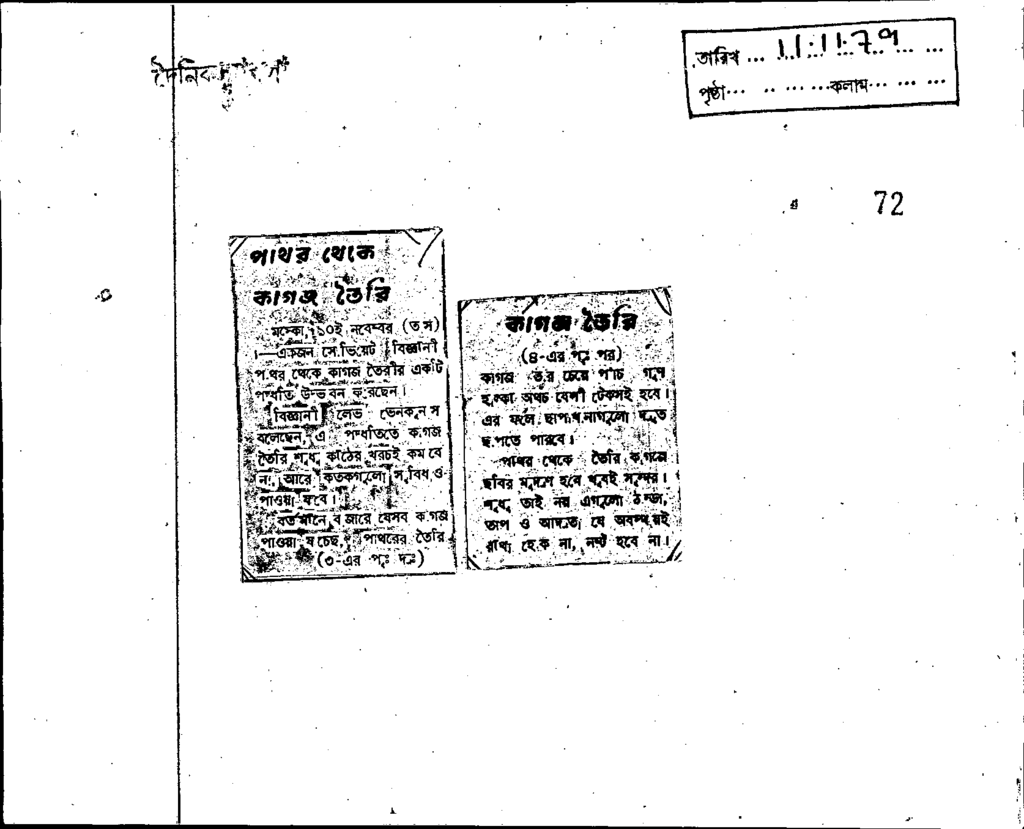 দৈনিক
তারিখ ... 11.11.79 ... ...
পৃষ্ঠা... .. ... ...কলাম... ... ...
72
পাথর থেকে
কাগজ তৈরি
মস্কো, ১০ই নবেম্বর (তাস)
।—একজন সোভিয়েট বিজ্ঞানী
পাথর থেকে কাগজ তৈরীর একটি
পদ্ধতি উদ্ভাবন করেছেন।
বিজ্ঞানী লেভ
বলেছেন, এ পদ্ধতিতে কাগজ
তৈরি শুধু কাঠের খরচই কমবে
না, আরো কতকগুলো সুবিধাও
পাওয়া যাবে।
বর্তমানে বাজারে যেসব কাগজ
পাওয়া যাচ্ছে, পাথরের তৈরি
(৩-এর পৃঃ দ্রঃ)
কাগজ তৈরি
(৪-এর পৃঃ পর)
কাগজ তার চেয়ে পাঁচ গুণ
হাল্কা অথচ বেশী টেকসই হবে।
এর ফলে ছাপাখানাগুলো দ্রুত
ছাপতে পারবে।
পাথর থেকে তৈরি কাগজে
ছবির মুদ্রণ হবে খুবই সুন্দর।
শুধু তাই নয় এগুলো ঠাণ্ডা,
তাপ ও আর্দ্রতা যে অবস্থায়ই
রাখা হোক না, নষ্ট হবে না।